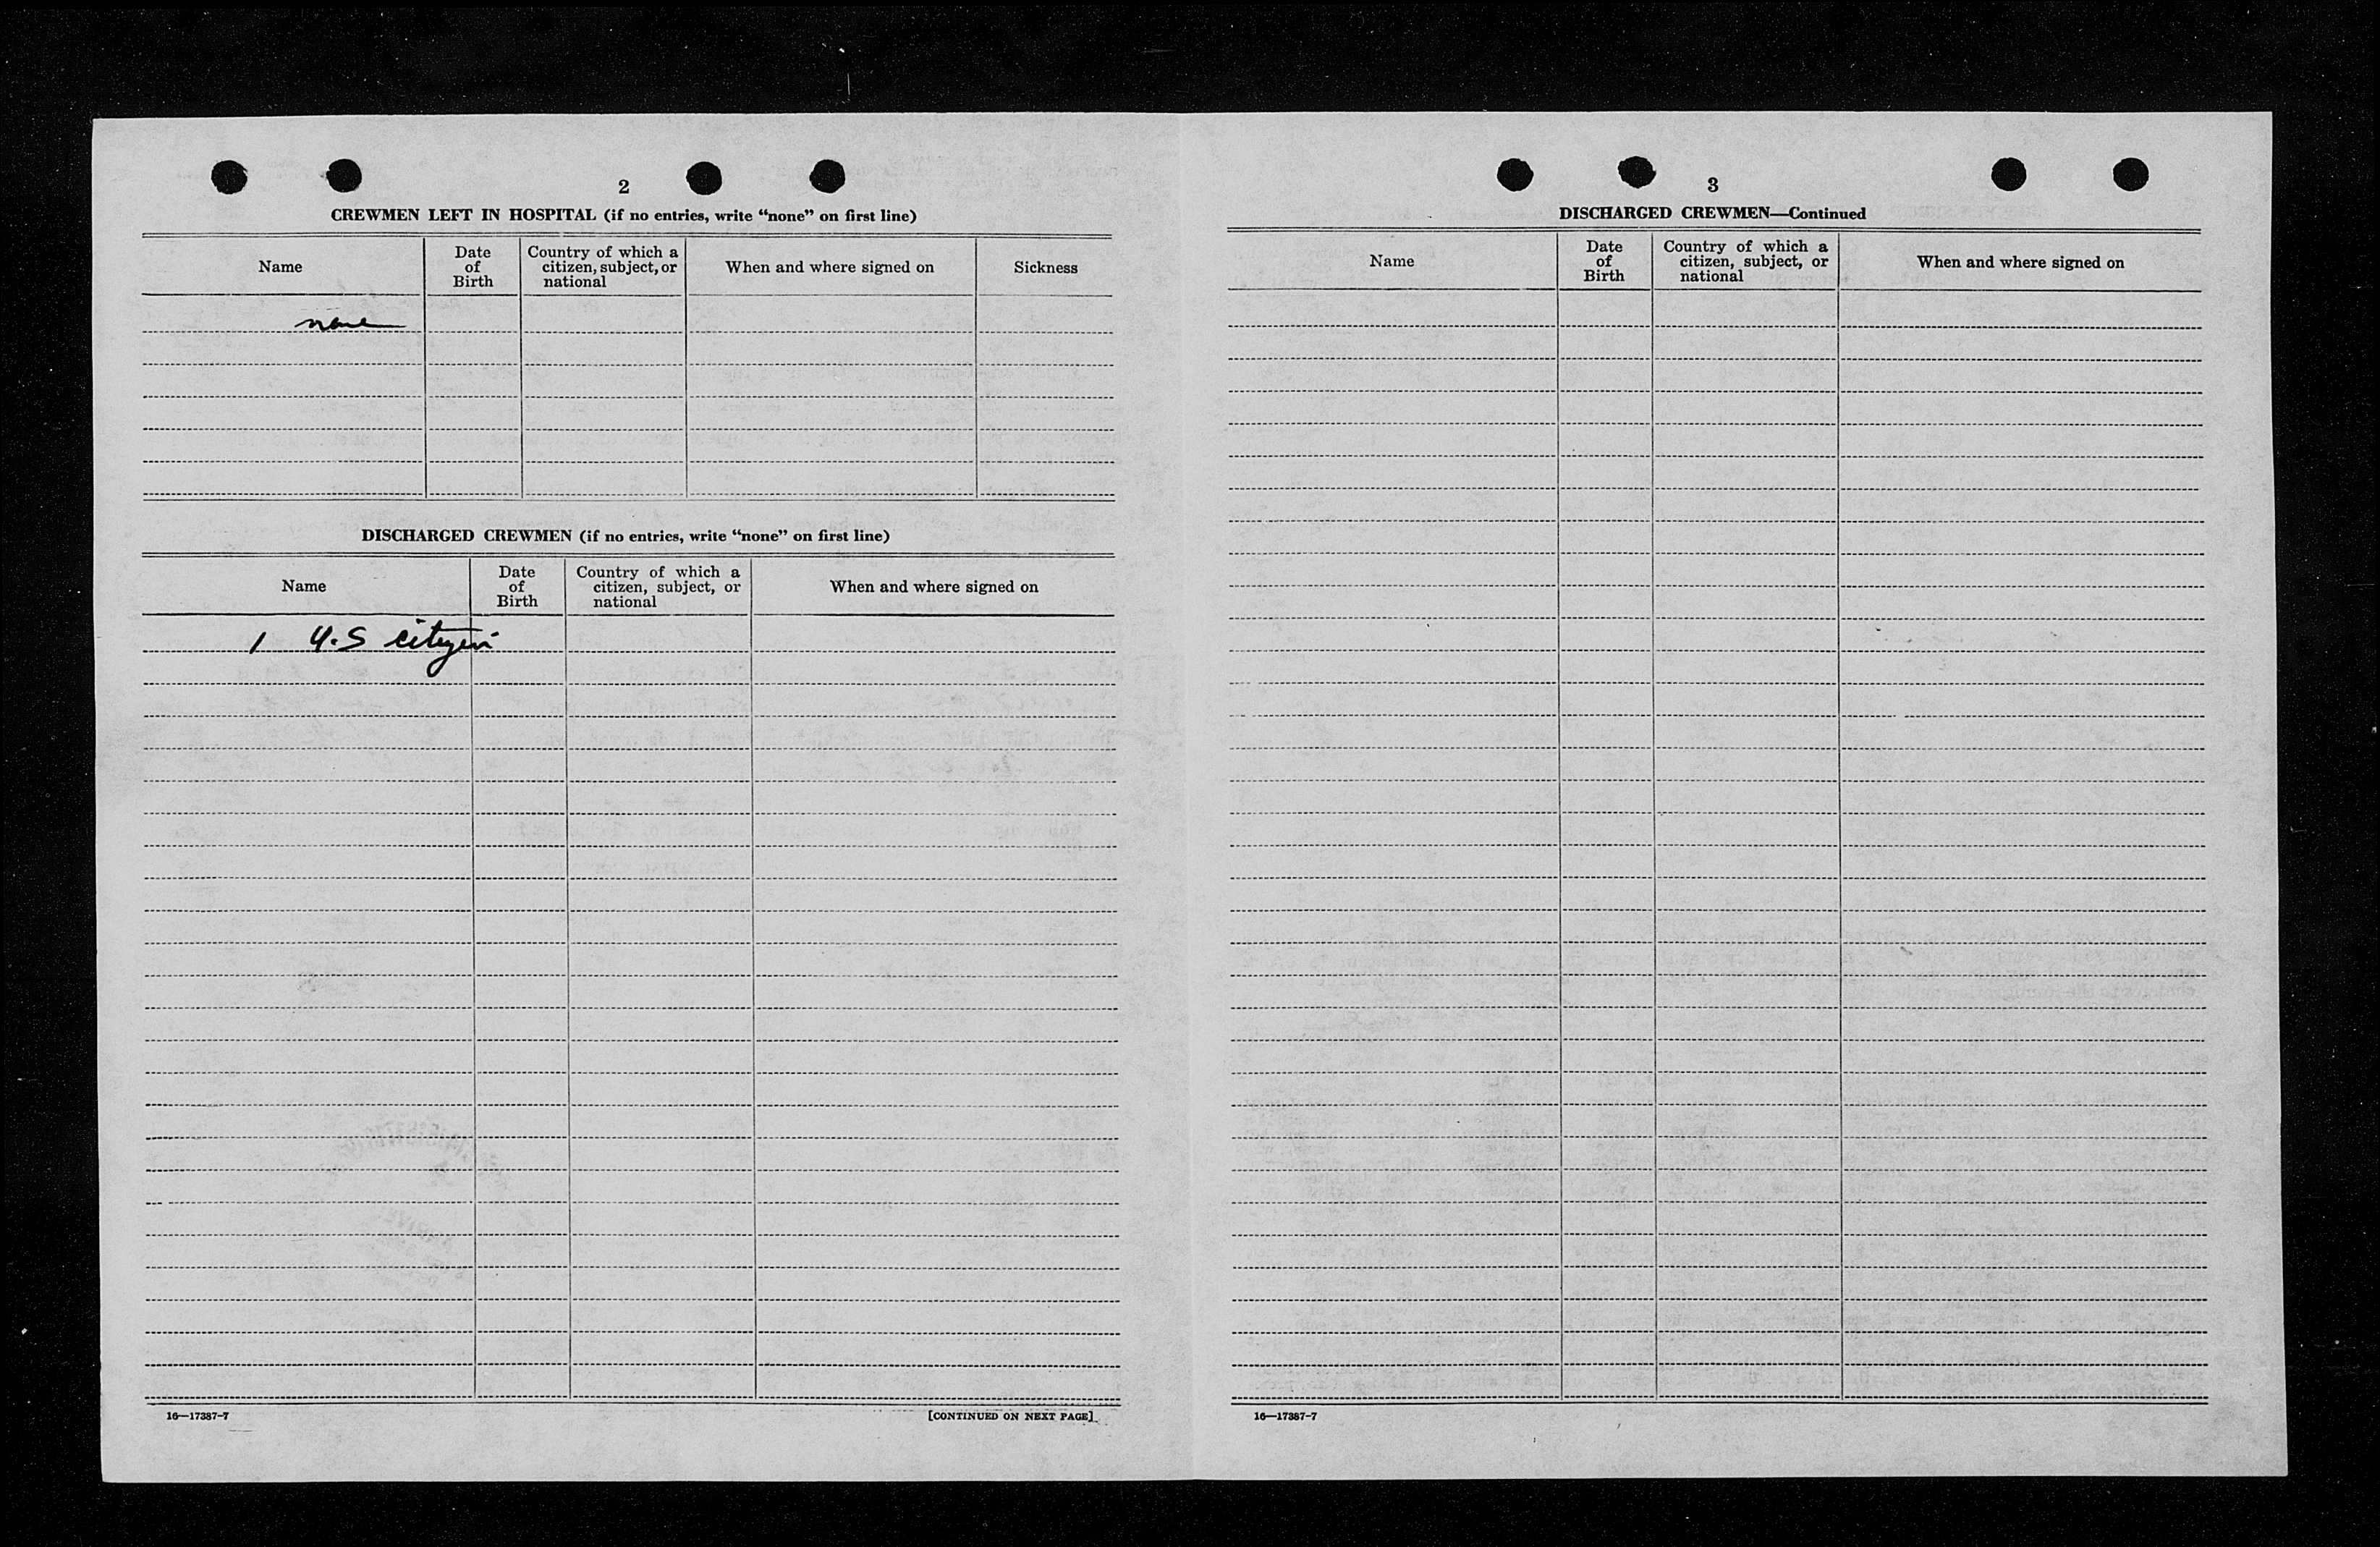 2
CREWMEN LEFT IN HOSPITAL (if no entries, write “none” on first line)
Name
Date of Birth
Country of which a citizen, subject, or national
When and where signed on
Sickness
none
DISCHARGED CREWMEN (if no entries, write “none” on first line)
Name
Date of Birth
Country of which a citizen, subject, or national
When and where signed on
1 U.S citizen
16—17387-7
[CONTINUED ON NEXT PAGE]
3
DISCHARGED CREWMEN—Continued
Name
Date of Birth
Country of which a citizen, subject, or national
When and where signed on
16—17387-7